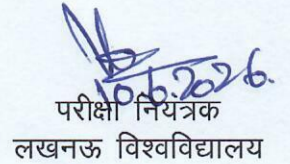 10.6.2026.
परीक्षा नियंत्रक
लखनऊ विश्वविद्यालय